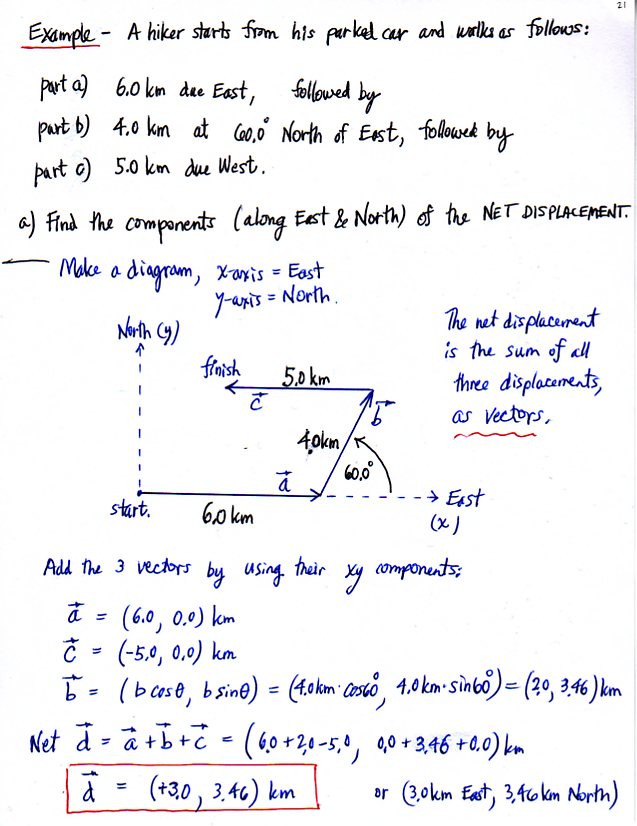 21
Example - A hiker starts from his parked car and walks as follows:
part a) 6.0 km due East, followed by
part b) 4.0 km at 60.0° North of East, followed by
part c) 5.0 km due West.
a) Find the components (along East & North) of the NET DISPLACEMENT.
Make a diagram, x-axis = East
y-axis = North.
North (y)
finish
5.0 km
c⃗
b⃗
4.0km
60.0°
a⃗
start.
6.0 km
East
(x)
The net displacement
is the sum of all
three displacements,
as vectors.
Add the 3 vectors by using their xy components:
a⃗ = (6.0, 0.0) km
c⃗ = (-5.0, 0.0) km
b⃗ = (b cosθ, b sinθ) = (4.0km·cos60°, 4.0km·sin60°) = (2.0, 3.46) km
Net d⃗ = a⃗ + b⃗ + c⃗ = (6.0 + 2.0 - 5.0, 0.0 + 3.46 + 0.0) km
d⃗ = (+3.0, 3.46) km or (3.0km East, 3.46 km North)